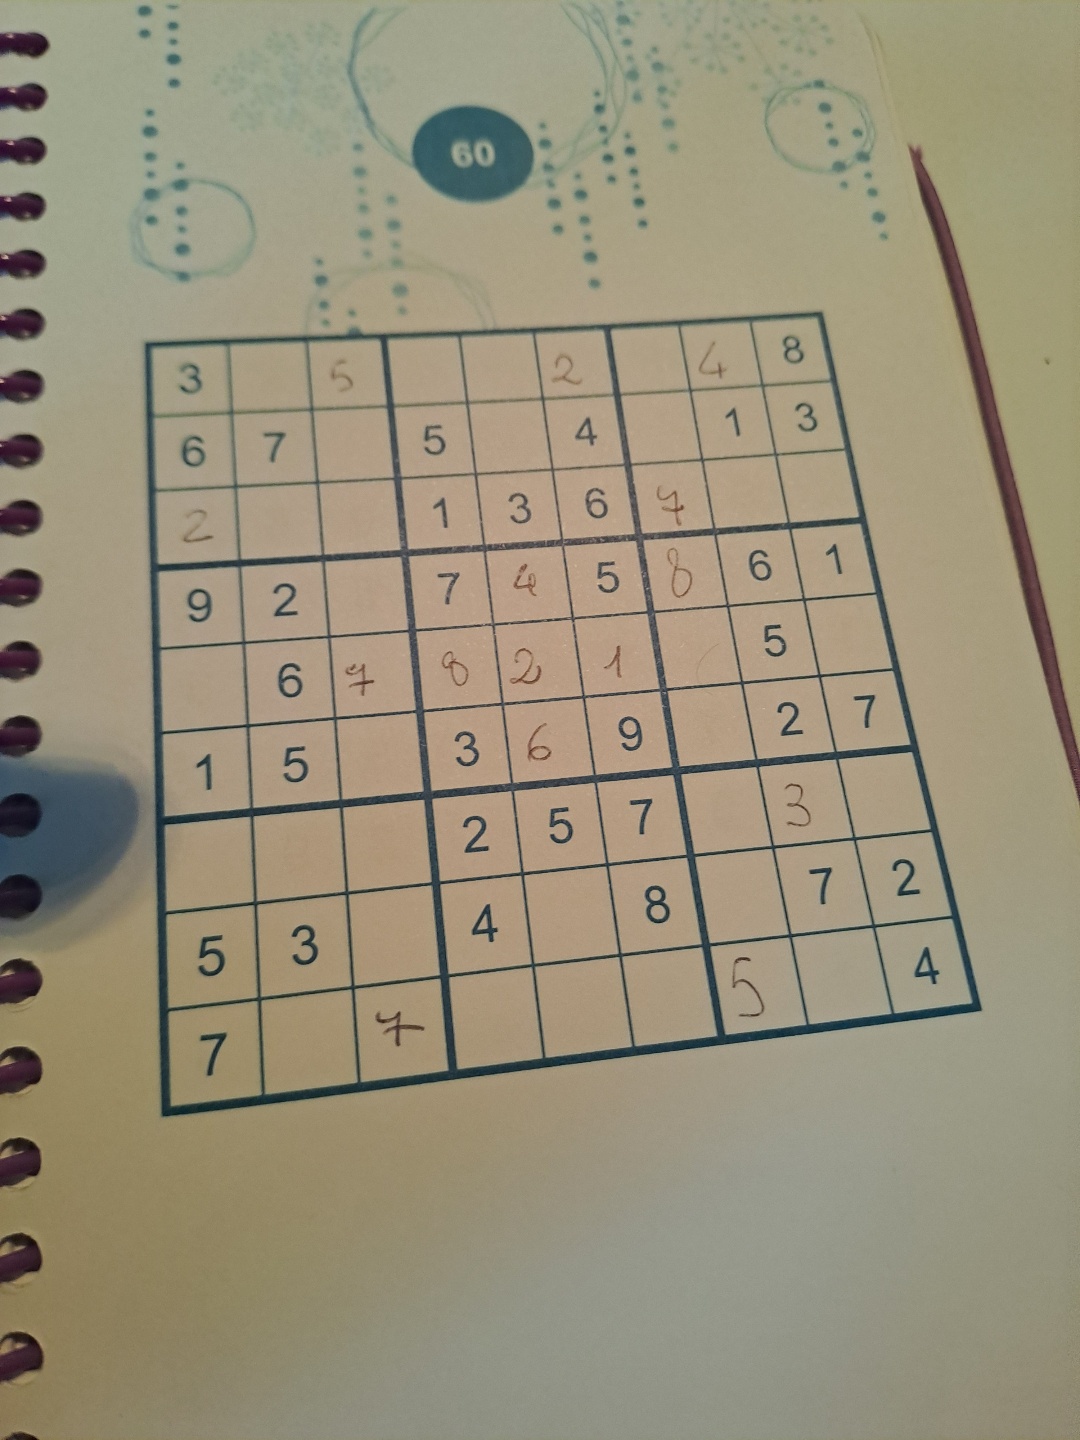 60
3 5 2 4 8
6 7 5 4 1 3
2 1 3 6 7
9 2 7 4 5 8 6 1
6 7 8 2 1 5
1 5 3 6 9 2 7
2 5 7 3
5 3 4 8 7 2
7 7 5 4